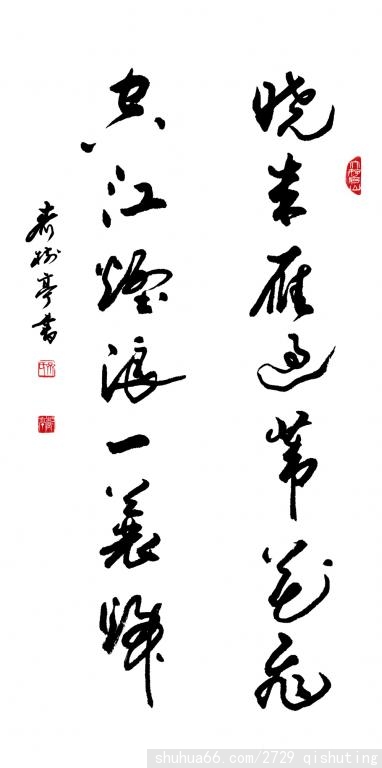 晓来雁过苇花飞
空江烟浪一蓑归
树亭书
shuhua66.com/2729 qishuting